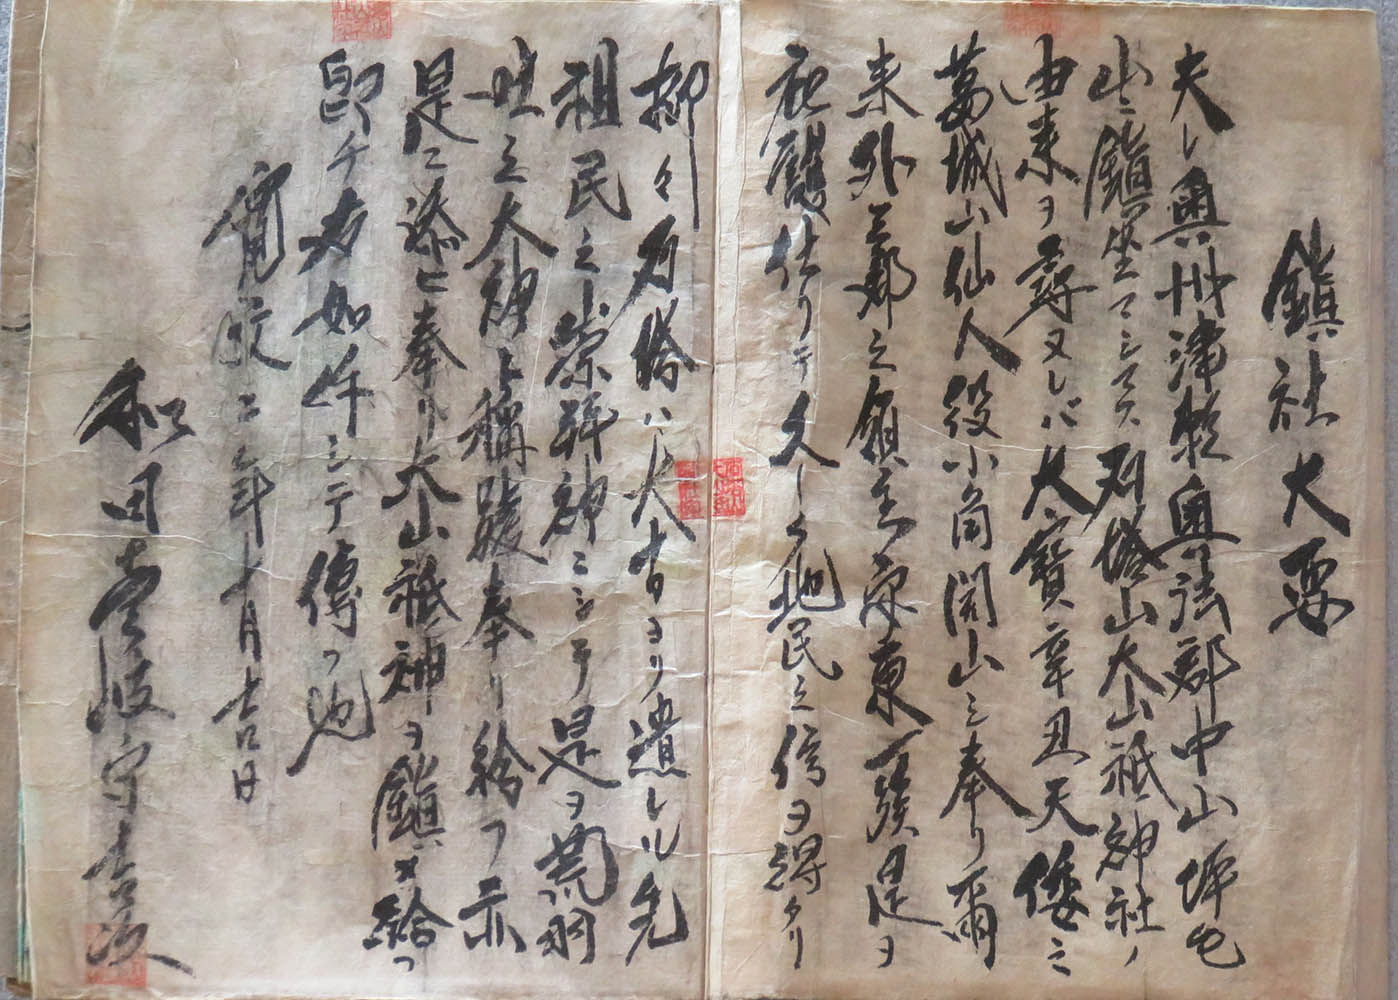 鎮社大要
夫レ奥州津軽奥法郡中山坪毛
山ニ鎮坐マシマス石塔山大山祇神社ノ
由来ヲ尋ヌレバ大寳辛丑天倭ミ
葛城山仙人役小角開山ミ奉リ爾
来外三郡之領主安東一族是ヲ
祈願仕リテ久シク地民之信ヲ得タリ
抑々石塔ハ大古ヨリ遺レル先
祖民之崇拜神ミシテ是ヲ荒羽
吐之大神ト稱號奉リ給フ亦
是ニ添ヒ奉リ大山祇神ヲ鎮メ給フ
即チ為如件シテ傳フ也
寛政二年十月吉日
和田壱岐守吉次